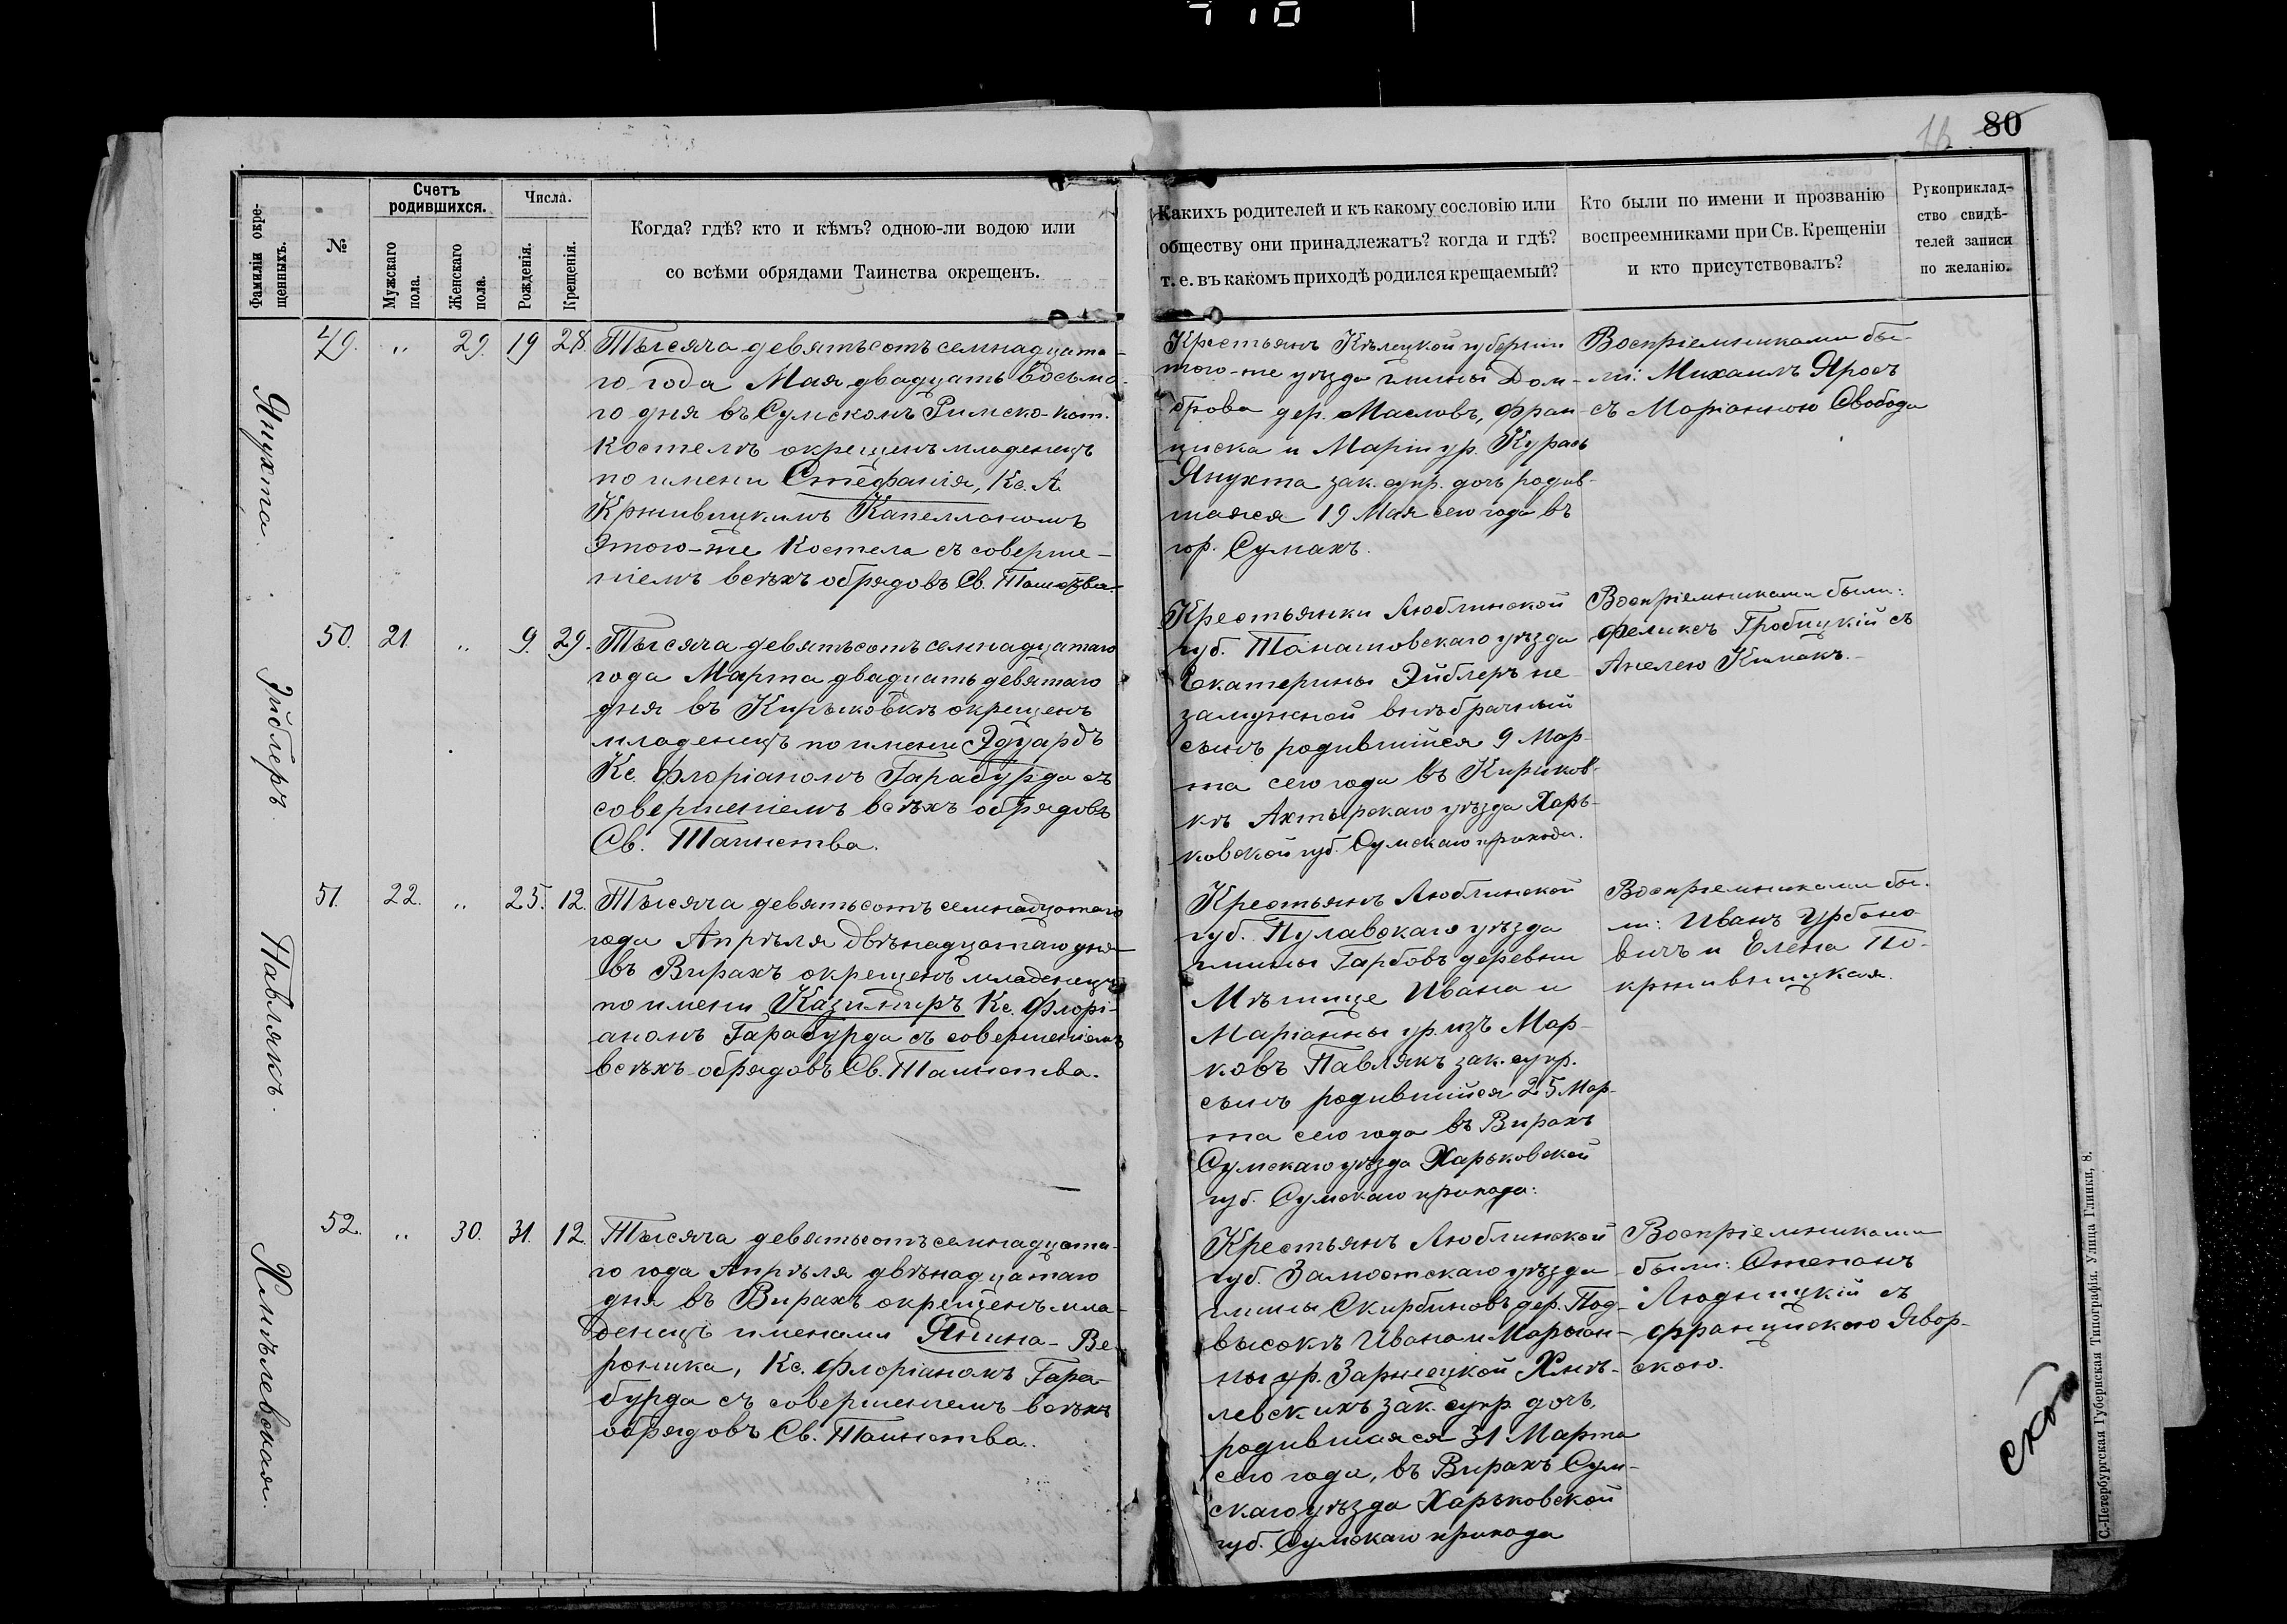 710
16 80
Фамиліи окре-
щенныхъ.
№
Счетъ
родившихся.
Мужскаго
пола.
Женскаго
пола.
Числа.
Рожденія.
Крещенія.
Когда? гдѣ? кто и кѣмъ? одною-ли водою или
со всѣми обрядами Таинства окрещенъ.
Какихъ родителей и къ какому сословію или
обществу они принадлежатъ? когда и гдѣ?
т. е. въ какомъ приходѣ родился крещаемый?
Кто были по имени и прозванію
воспреемниками при Св. Крещеніи
и кто присутствовалъ?
Рукоприклад-
ство свидѣ-
телей записи
по желанію.
Янухта.
49. „ 29. 19 28.
Тысяча девятьсотъ семнадцата-
го года Мая двадцать восьма-
го дня въ Сумскомъ Римско-кат.
Костелѣ окрещенъ младенецъ
по имени Стефанія, Кс. А.
Крживицкимъ Капелланомъ
Этого-же Костела съ соверше-
ніемъ всѣхъ обрядовъ Св. Таинства.
Крестьянъ Кѣлецкой губерніи
того-же уѣзда гмины Дом-
брова дер. Масловъ, Фран-
циска и Маріи ур. Курась
Янухта зак. супр. дочь родив-
шаяся 19 Мая сего года въ
гор. Сумахъ.
Воспріемниками бы-
ли: Михаилъ Яросъ
съ Маріанною Свобода
Эйблеръ.
50. 21. „ 9. 29.
Тысяча девятьсотъ семнадцатаго
года Марта двадцать девятаго
дня въ Кириковкѣ окрещенъ
младенецъ по имени Эдуардъ
Кс. Флоріаномъ Гарабурда съ
совершеніемъ всѣхъ обрядовъ
Св. Таинства.
Крестьянки Люблинской
губ. Томашовскаго уѣзда
Екатерины Эйблеръ не
замужной внѣбрачный
сынъ родившійся 9 Мар-
та сего года въ Кириков-
кѣ Ахтырскаго уѣзда Харь-
ковской губ. Сумскаго прихода.
Воспріемниками были:
Феликсъ Гробицкій съ
Анелею Климакъ.
Павлякъ.
51. 22. „ 25. 12.
Тысяча девятьсотъ семнадцатаго
года Апрѣля двѣнадцатаго дня
въ Вирахъ окрещенъ младенецъ
по имени Казиміръ Кс. Флорі-
аномъ Гарабурда съ совершеніемъ
всѣхъ обрядовъ Св. Таинства.
Крестьянъ Люблинской
губ. Пулавскаго уѣзда
гмины Гарбовъ деревни
Мѣтище Ивана и
Маріанны ур. изъ Мар-
ковъ Павлякъ зак. супр.
сынъ родившійся 25 Мар-
та сего года въ Вирахъ
Сумскаго уѣзда Харьковской
губ. Сумскаго прихода:
Воспріемниками бы-
ли: Иванъ Урбано-
вичъ и Елена По-
крживницкая.
Хмѣлевская.
52. „ 30. 31. 12.
Тысяча девятьсотъ семнадцата-
го года Апрѣля двѣнадцатаго
дня въ Вирахъ окрещенъ мла-
денецъ именами Янина-Ве-
роника, Кс. Флоріаномъ Гара-
бурда съ совершеніемъ всѣхъ
обрядовъ Св. Таинства.
Крестьянъ Люблинской
губ. Замостскаго уѣзда
гмины Скирбиновъ дер. Под-
высокѣ Ивана и Маріан-
ны ур. Зарнецкой Хмѣ-
левскихъ зак. супр. дочь,
родившаяся 31 Марта
сего года, въ Вирахъ Сум-
скаго уѣзда Харьковской
губ. Сумскаго прихода
Воспріемниками
были: Степанъ
Людницкій съ
Францискою Явор-
скою.
С.-Петербургская Губернская Типографія. Улица Глинки, 8.